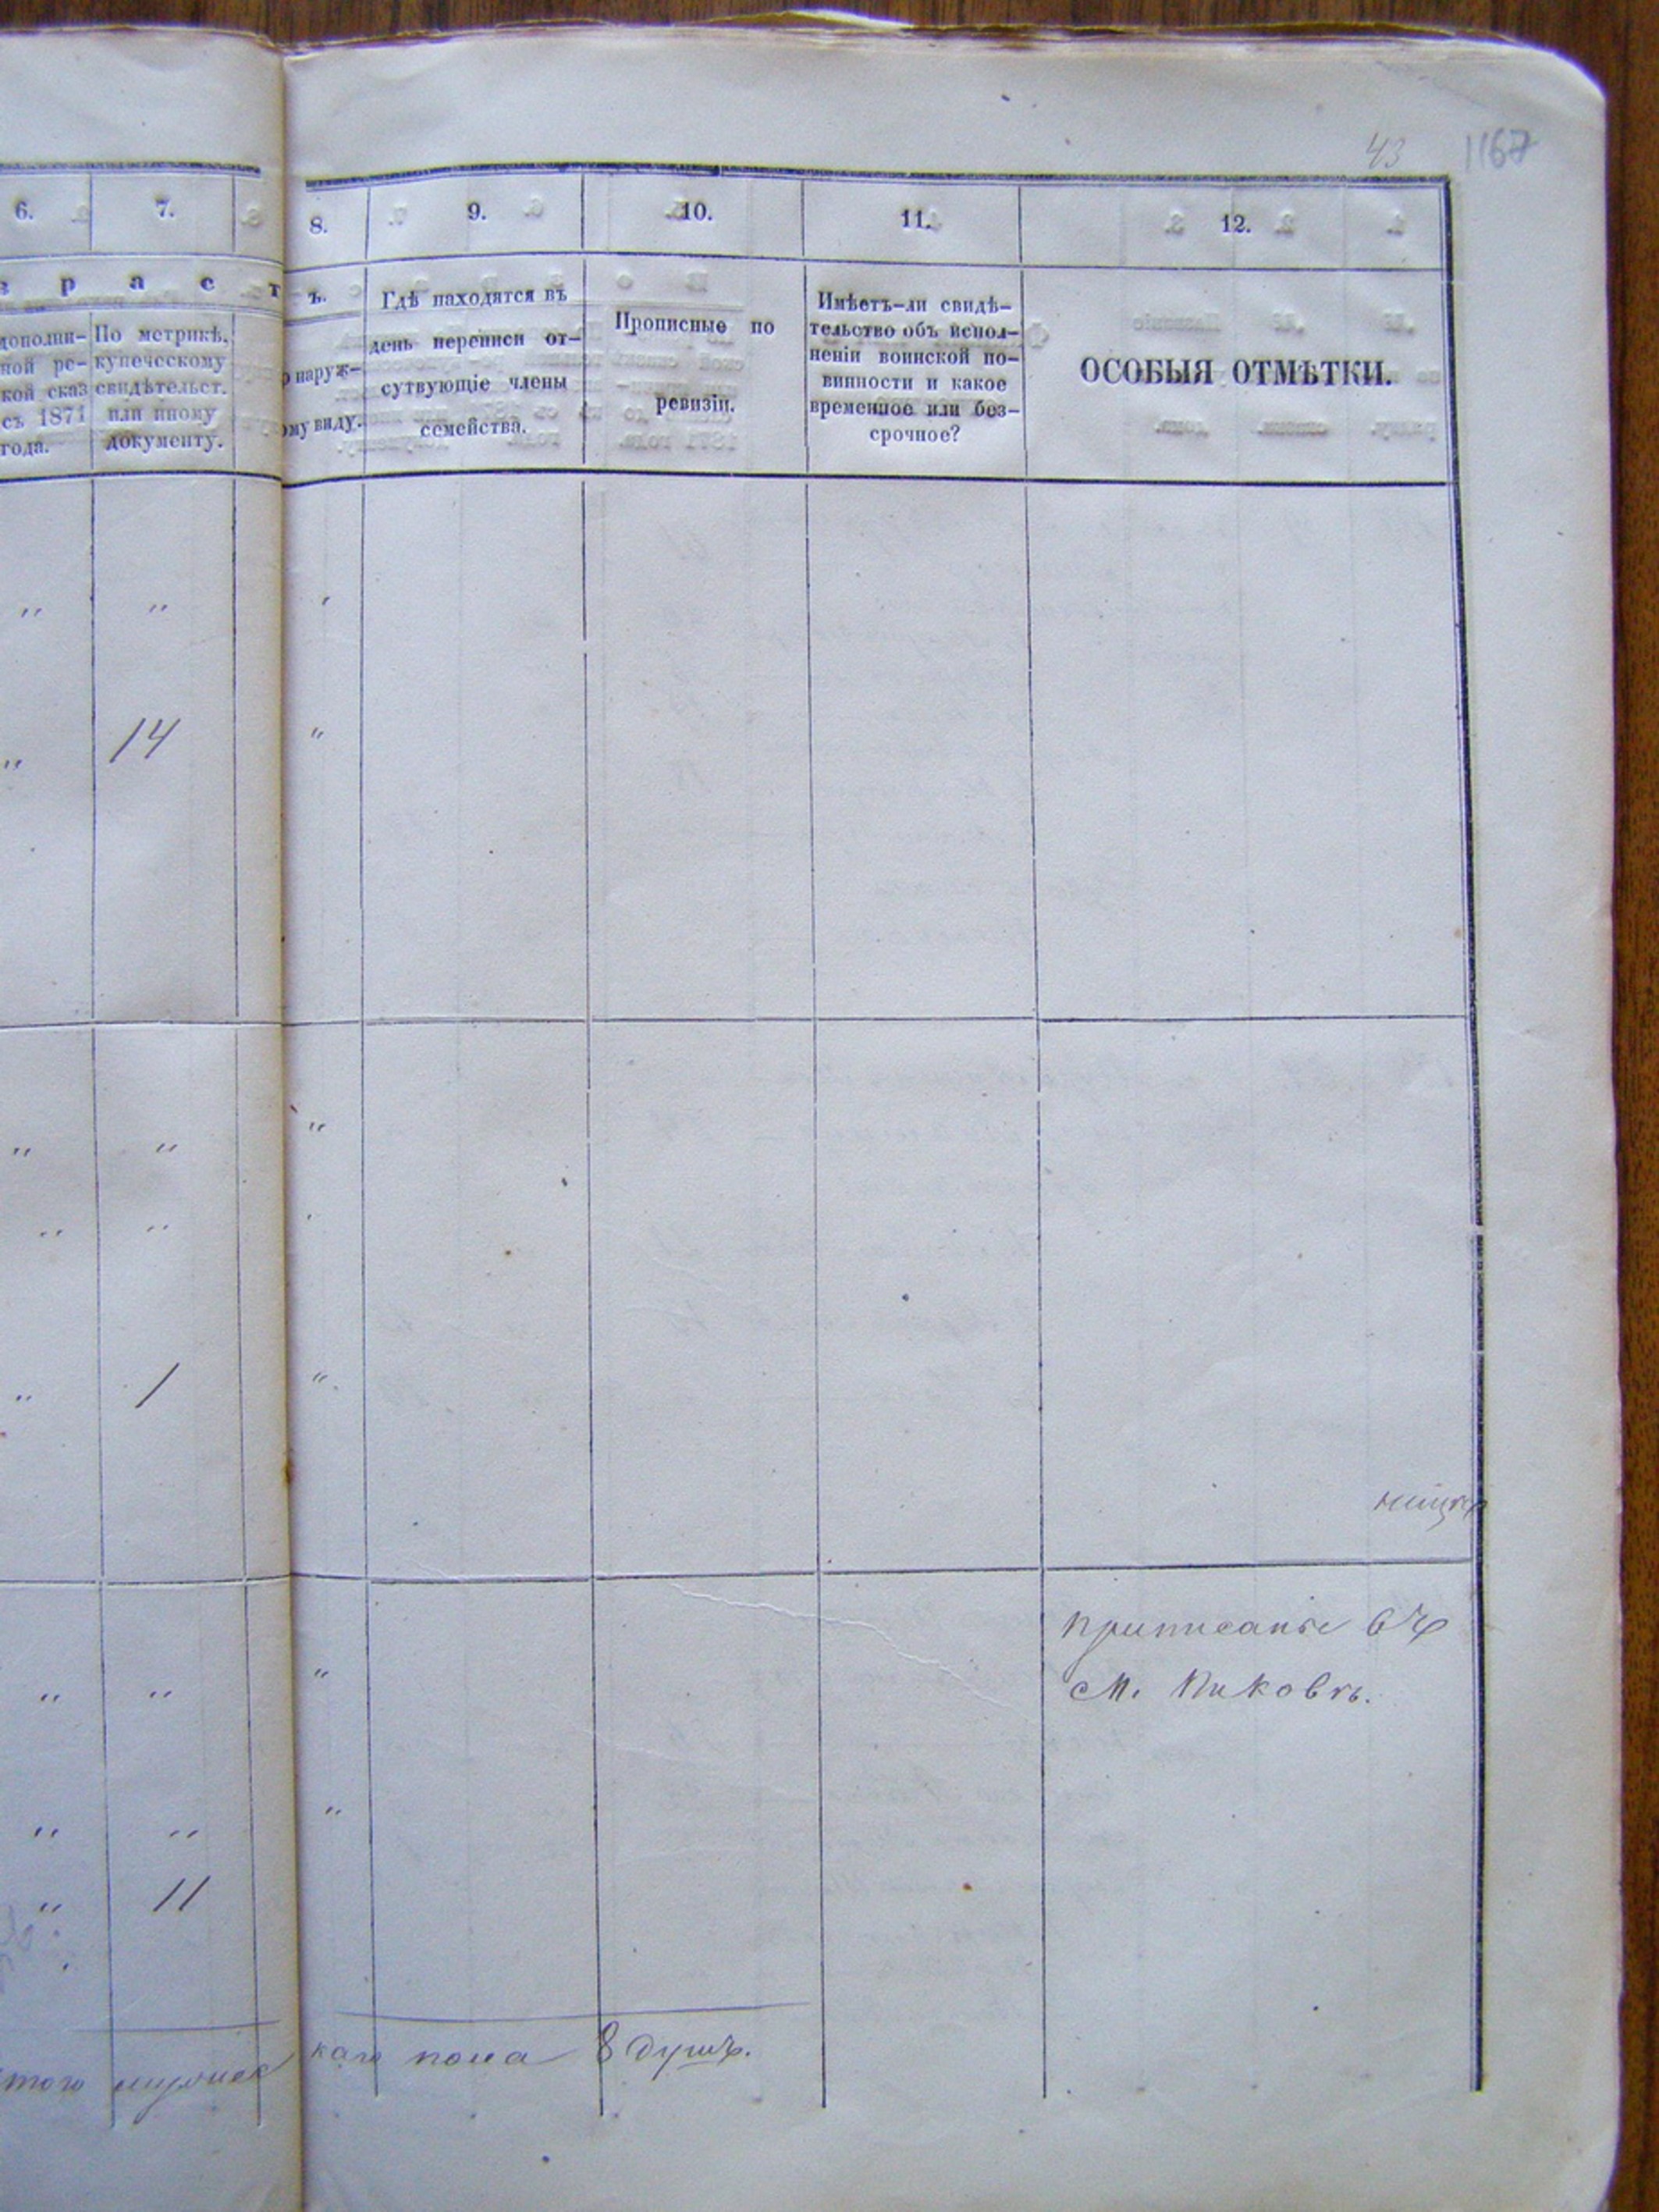 43 1167
6. 7. 8. 9. 10. 11. 12.
з р а с т ъ.
дополни-
ной ре-
кой сказ
съ 1871
года.
По метрикѣ,
купеческому
свидѣтельст.
или иному
документу.
о наруж-
ому виду.
Гдѣ находятся въ
день переписи от-
сутвующіе члены
семейства.
Прописные по
ревизіи.
Имѣетъ-ли свидѣ-
тельство объ испол-
неніи воинской по-
винности и какое
временное или без-
срочное?
ОСОБЫЯ ОТМѢТКИ.
" " "
" 14 "
" " "
" " "
" 1 "
приписанъ въ
" " "
м. Пиковъ.
" " "
" 11
того мужескаго пола 8 душъ.